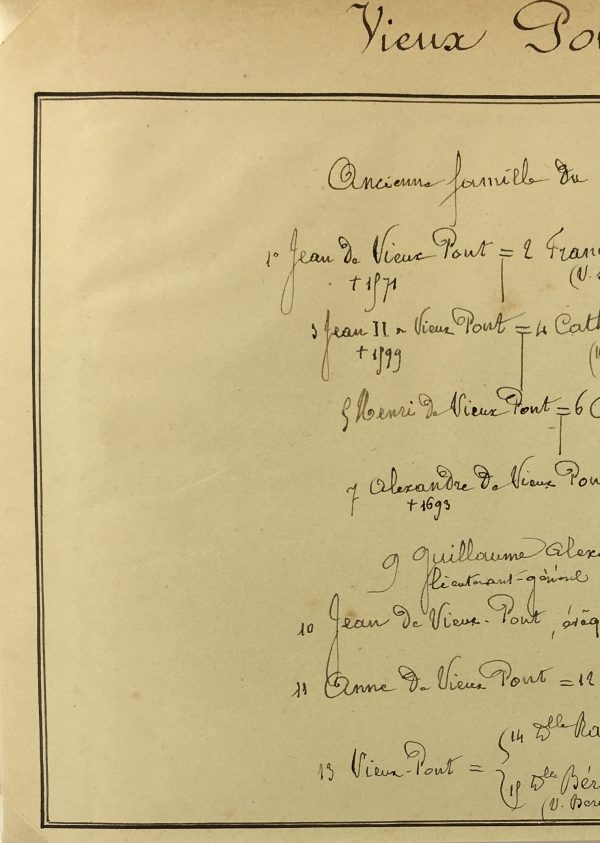 Vieux Po
Ancienne famille du
1° Jean de Vieux Pont = 2 Fran
(V.
† 1571
3 Jean II de Vieux Pont = 4 Cath
† 1599
5 Henri de Vieux Pont = 6 C
7 Alexandre de Vieux Pon
† 1693
9 Guillaume Alex
lieutenant-général
10 Jean de Vieux-Pont, évêq
11 Anne de Vieux Pont = 12
13 Vieux-Pont =
14 Dlle Ra
15 Dlle Bér
(V. Ber